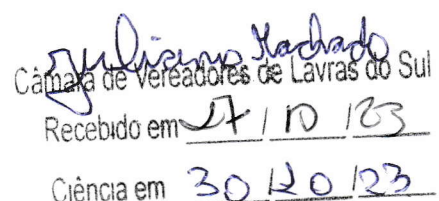 Juliano Machado
Câmara de Vereadores de Lavras do Sul
Recebido em 27 / 10 / 23
Ciência em 30 / 20 / 23